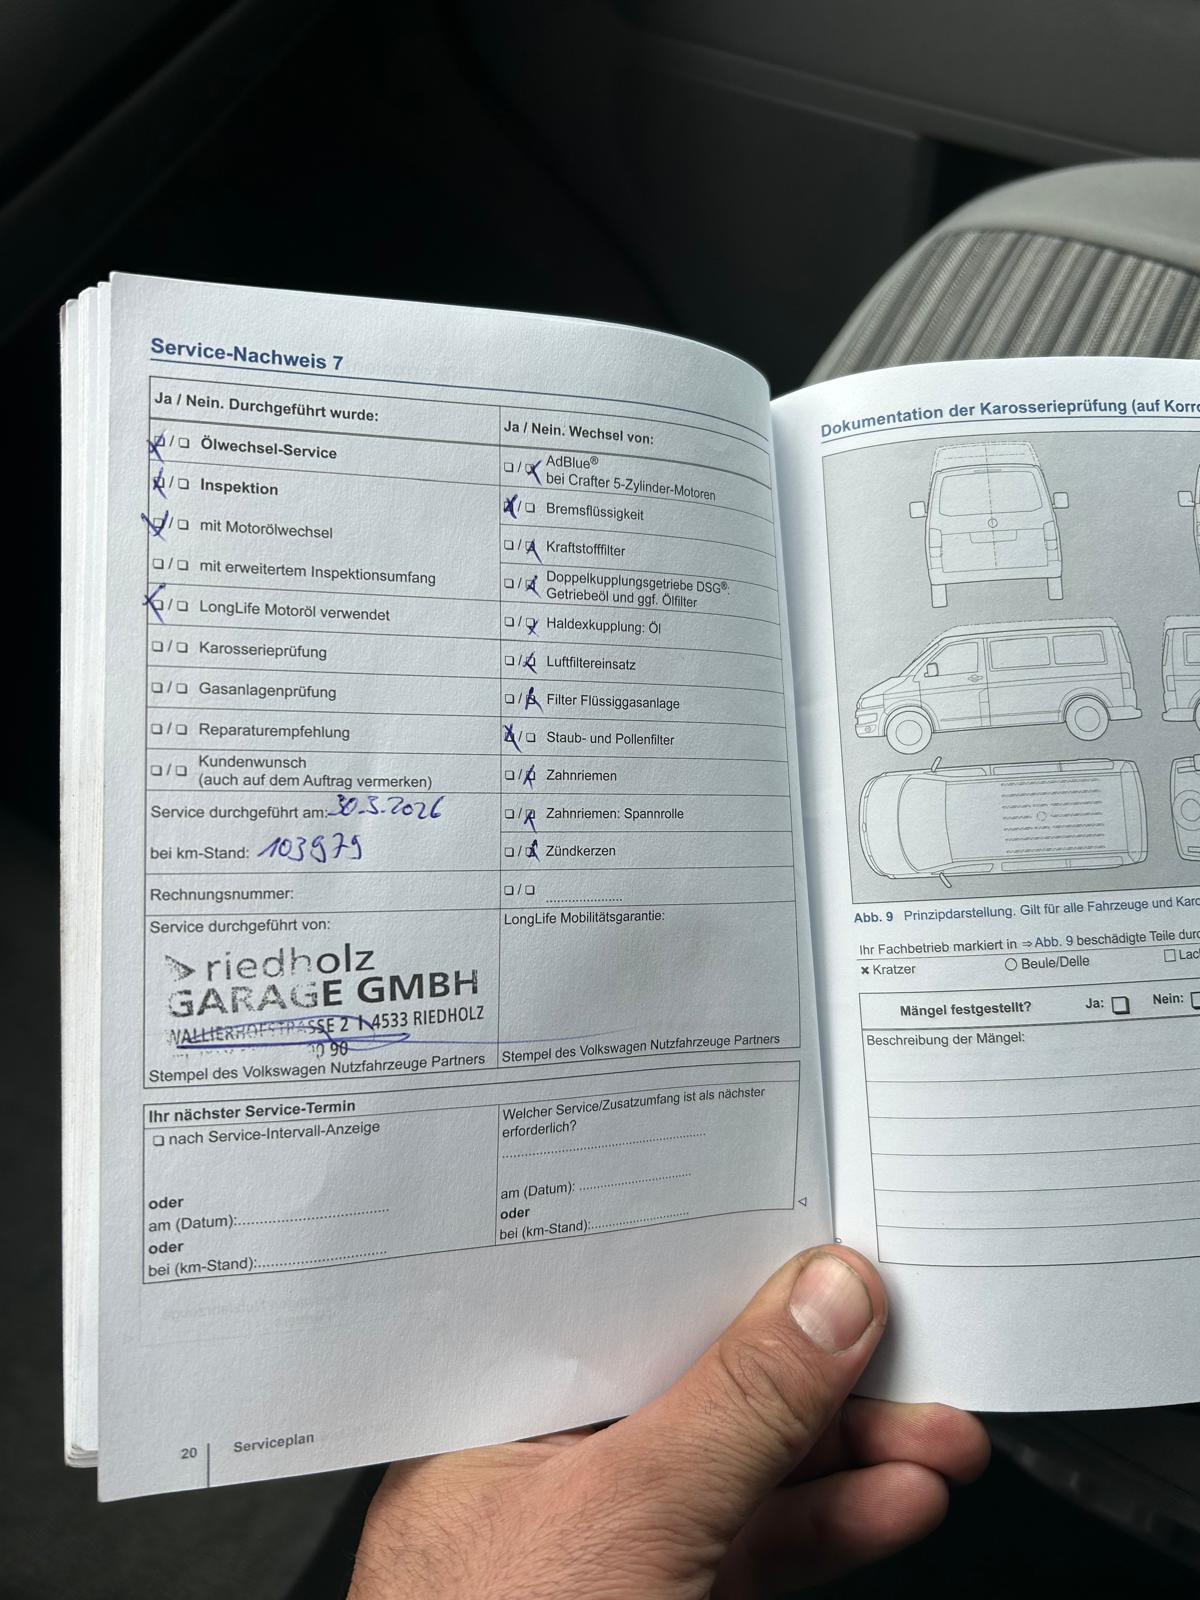 Service-Nachweis 7
Ja / Nein. Durchgeführt wurde:
☒ / ☐ Ölwechsel-Service
☒ / ☐ Inspektion
☒ / ☐ mit Motorölwechsel
☐ / ☐ mit erweitertem Inspektionsumfang
☒ / ☐ LongLife Motoröl verwendet
☐ / ☐ Karosserieprüfung
☐ / ☐ Gasanlagenprüfung
☐ / ☐ Reparaturempfehlung
☐ / ☐ Kundenwunsch
(auch auf dem Auftrag vermerken)
Service durchgeführt am: 30.3.2026
bei km-Stand: 103979
Rechnungsnummer:
Service durchgeführt von:
riedholz
GARAGE GMBH
WALLIERHOFSTRASSE 2 | 4533 RIEDHOLZ
90
Stempel des Volkswagen Nutzfahrzeuge Partners
Ja / Nein. Wechsel von:
☐ / ☒ AdBlue®
bei Crafter 5-Zylinder-Motoren
☒ / ☐ Bremsflüssigkeit
☐ / ☒ Kraftstofffilter
☐ / ☒ Doppelkupplungsgetriebe DSG®:
Getriebeöl und ggf. Ölfilter
☐ / ☒ Haldexkupplung: Öl
☐ / ☒ Luftfiltereinsatz
☐ / ☒ Filter Flüssiggasanlage
☒ / ☐ Staub- und Pollenfilter
☐ / ☒ Zahnriemen
☐ / ☒ Zahnriemen: Spannrolle
☐ / ☒ Zündkerzen
☐ / ☐ ....................
LongLife Mobilitätsgarantie:
Stempel des Volkswagen Nutzfahrzeuge Partners
Ihr nächster Service-Termin
☐ nach Service-Intervall-Anzeige
oder
am (Datum):
oder
bei (km-Stand):
Welcher Service/Zusatzumfang ist als nächster
erforderlich?
am (Datum):
oder
bei (km-Stand):
20 Serviceplan
Dokumentation der Karosserieprüfung (auf
Abb. 9 Prinzipdarstellung. Gilt für alle Fahrzeuge und
Ihr Fachbetrieb markiert in ⇒ Abb. 9 beschädigte Teile
× Kratzer ○ Beule/Delle
Mängel festgestellt? Ja: ☐ Nein: ☐
Beschreibung der Mängel: